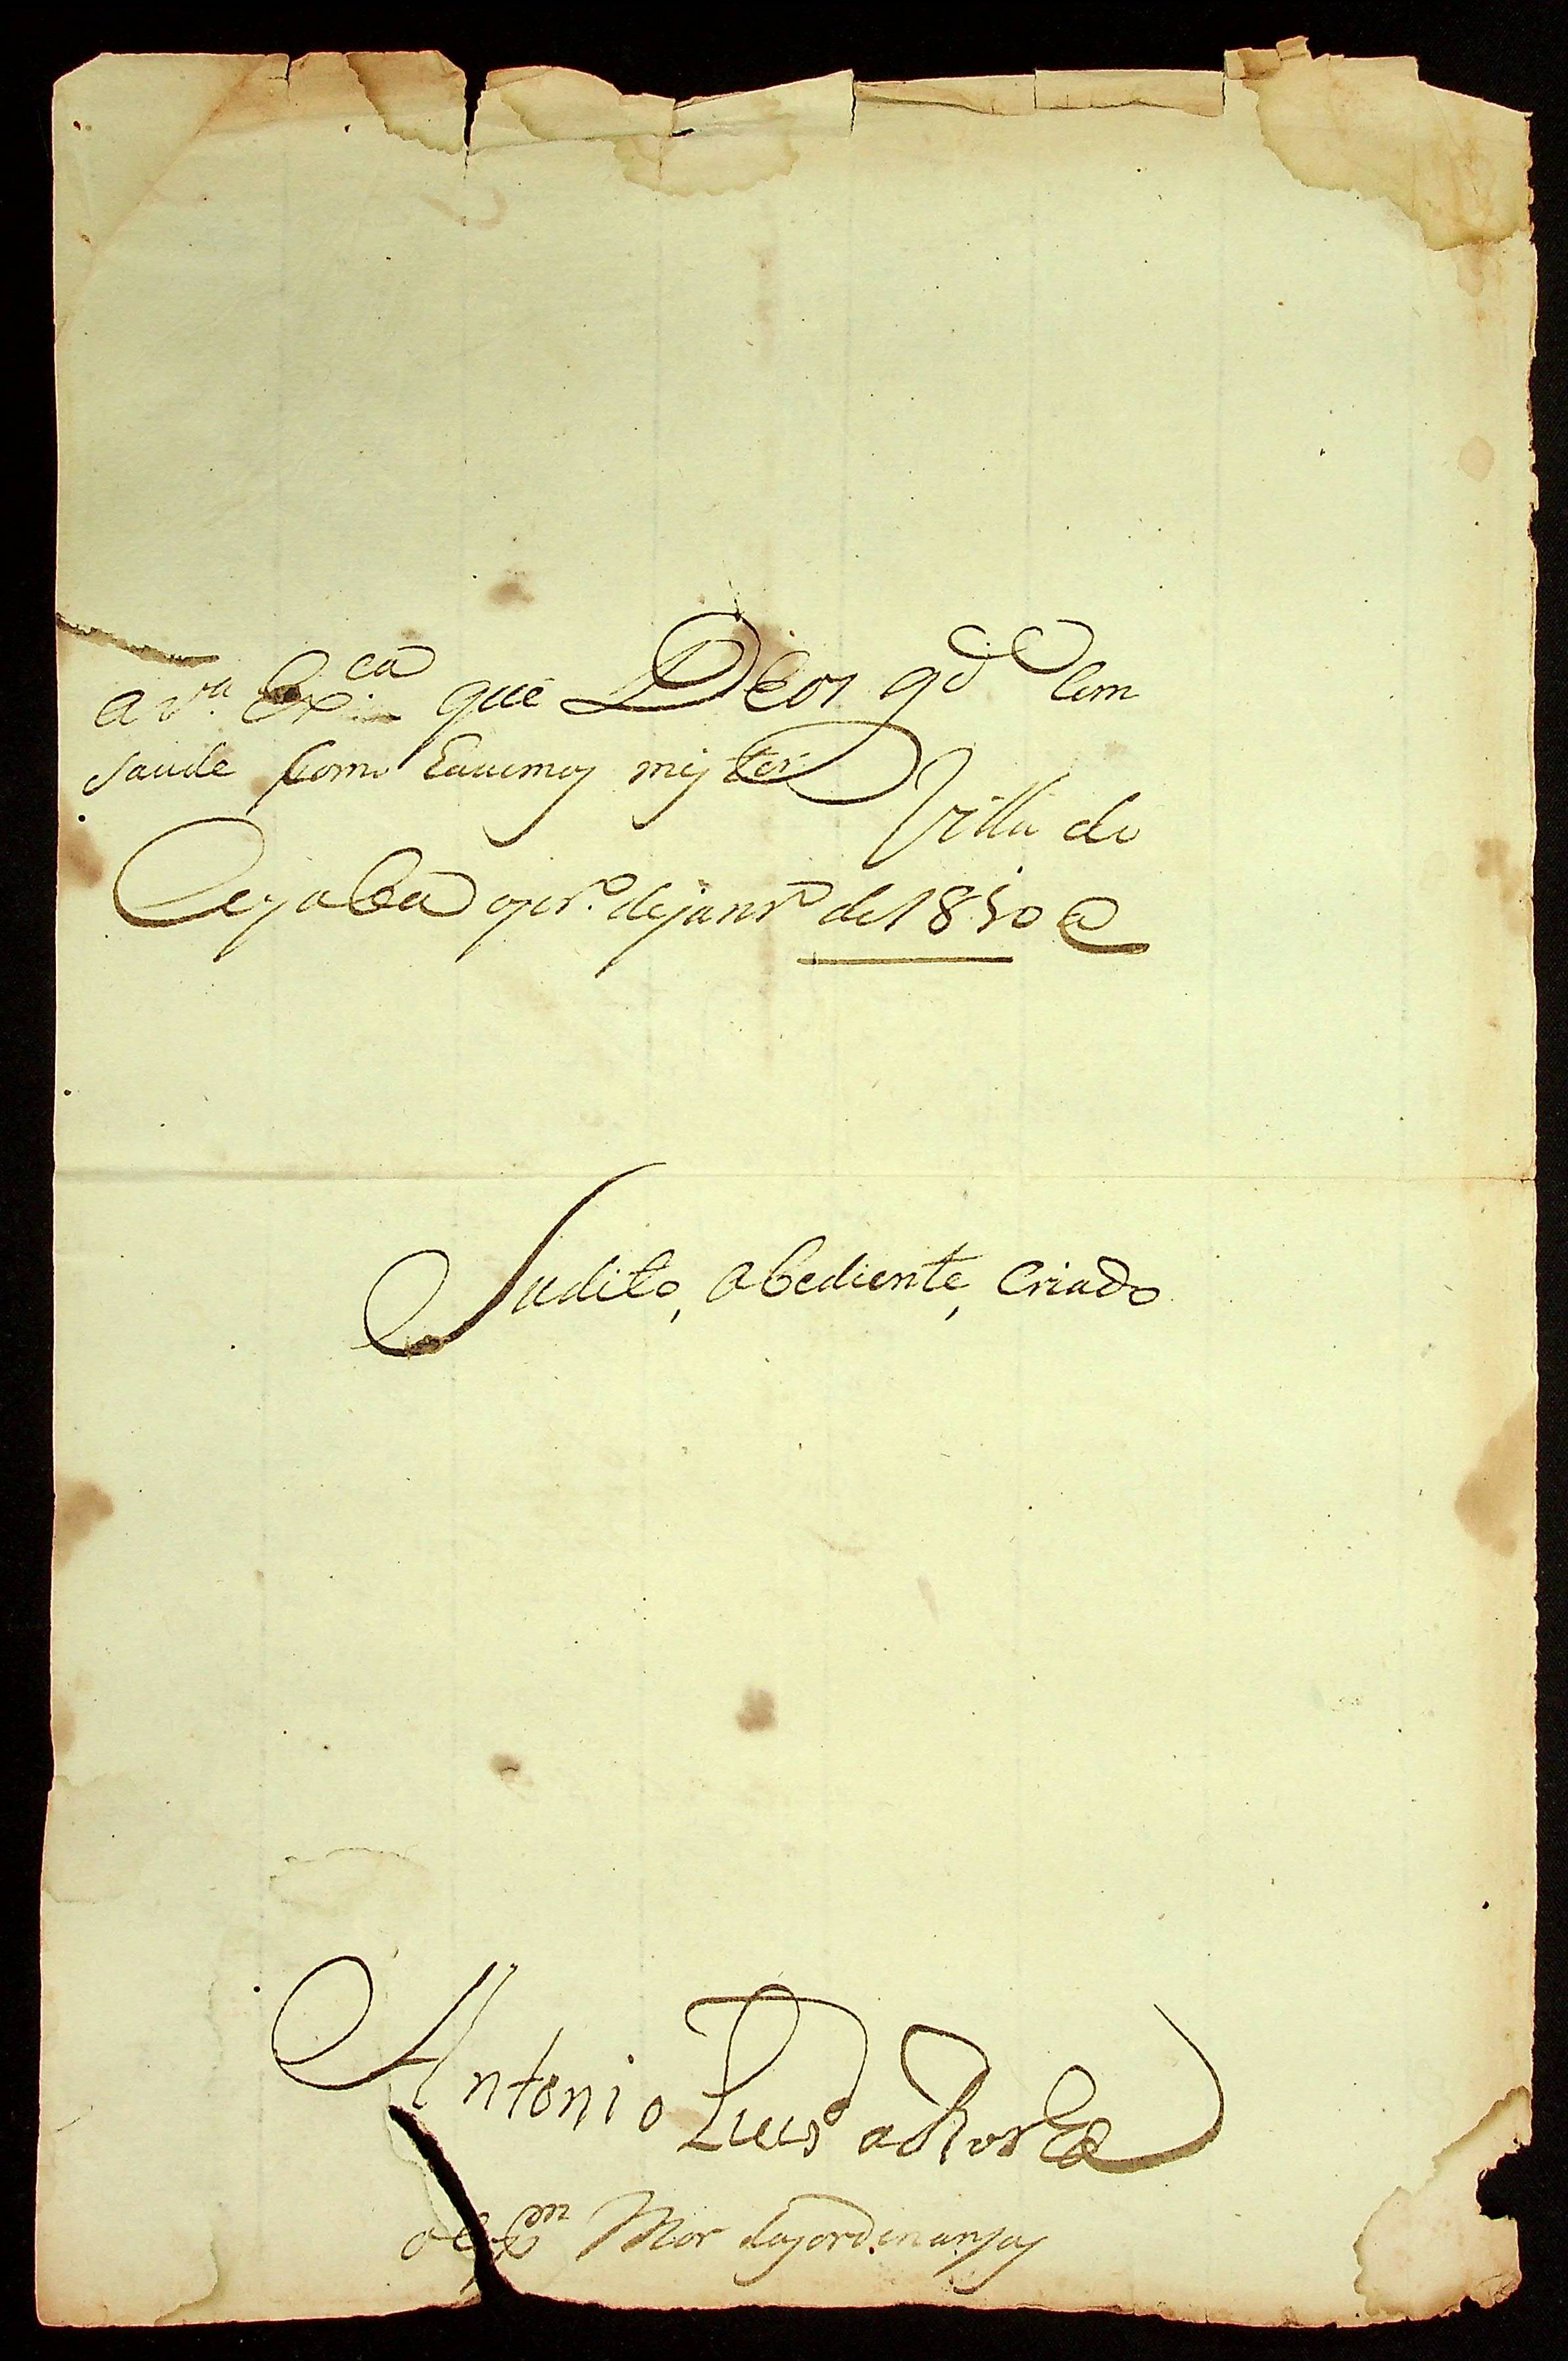 a v.ra Ex.ca que Deos gd.e com
saude como havemos mister
Villa de
Cuyaba o pr.o de janr.o de 1810 a
Sudito, obediente, Criado
Antonio Luis da Rocha
o Cap.m Mor das ordenansas